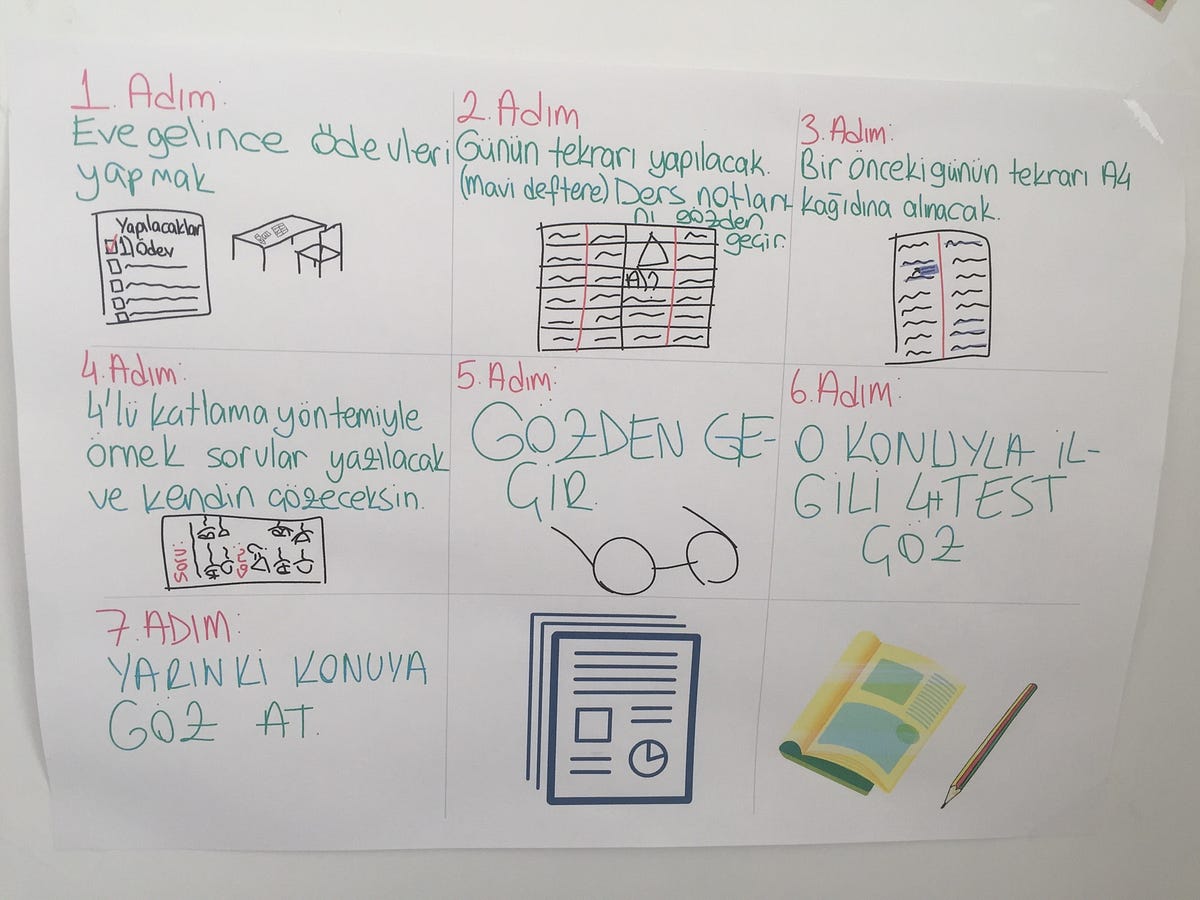 1. Adım:
Eve gelince ödevleri
yapmak
Yapılacaklar
1) Ödev
2. Adım
Günün tekrarı yapılacak.
(mavi deftere) Ders notları-
nı gözden
geçir.
A)?
3. Adım:
Bir önceki günün tekrarı A4
kağıdına alınacak.
4. Adım:
4'lü katlama yöntemiyle
örnek sorular yazılacak
ve kendin çözeceksin.
Soru:
5. Adım:
GÖZDEN GE-
ÇİR.
6. Adım:
O KONUYLA İL-
GİLİ 4+TEST
ÇÖZ
7. ADIM:
YARINKİ KONUYA
GÖZ AT.